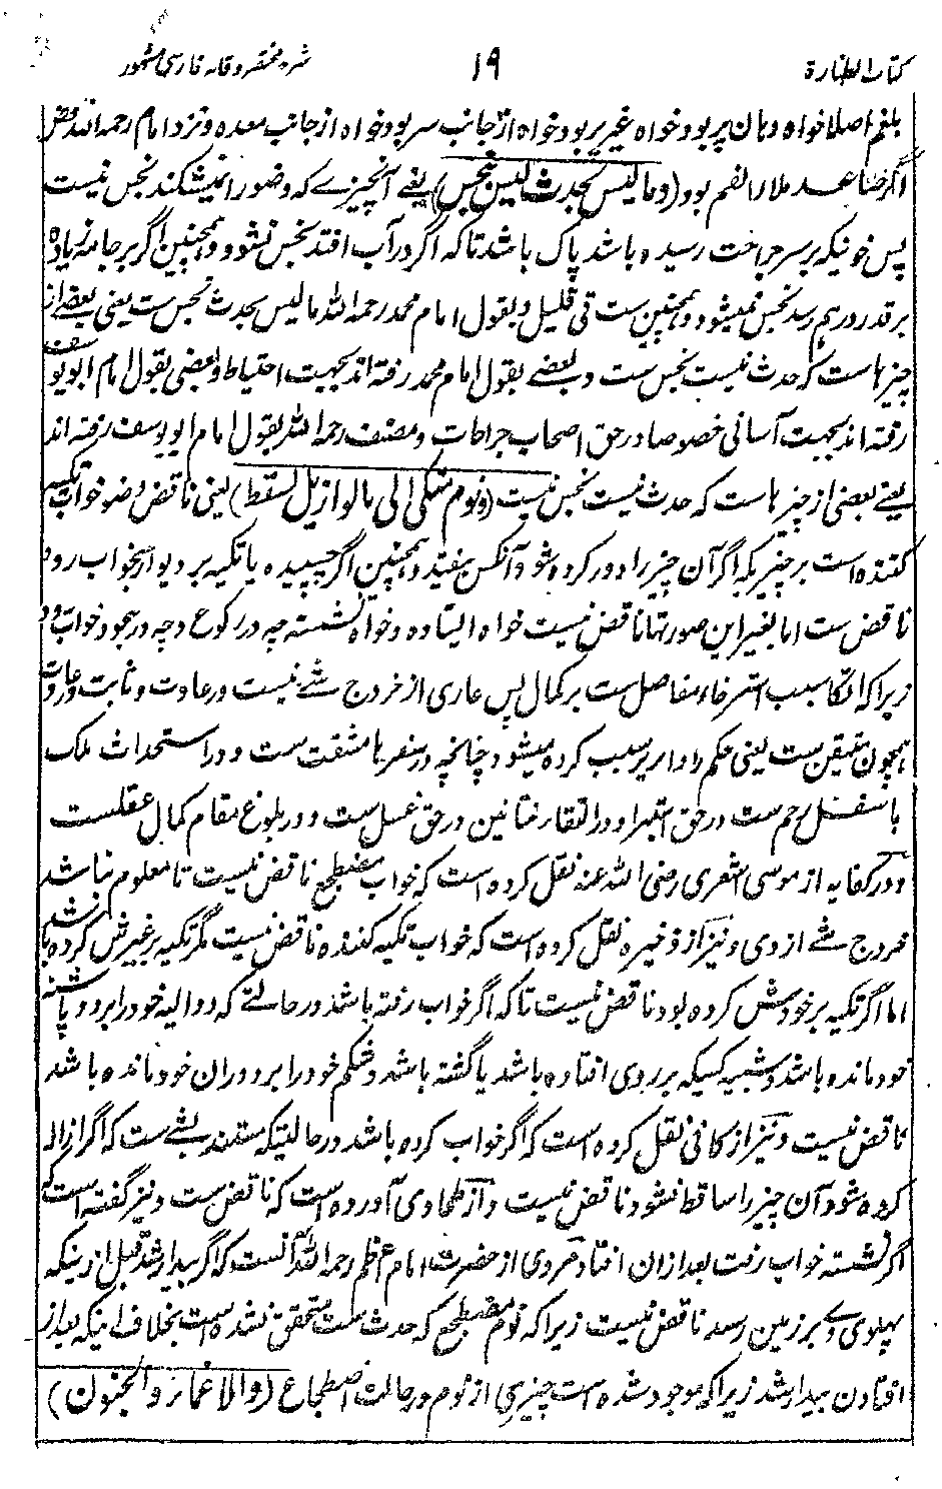 کتاب الطهارة ۱۹ شرح مختصر وقایه فارسی مشهور
بلغم اصلا خواه دهان پر بود خواه غیر پر بود خواه از جانب سر بود خواه از جانب معده و نزد امام رحمه الله نقض
اگر صاعد ملا الفم بود (وما لیس بحدث لیس بنجس) یعنے آنچیزے که وضو را نمیشکند نجس نیست
پس خونیکه بر سر جراحت رسیده باشد پاک باشد تا که اگر در آب افتد نجس نشود و همچنین اگر بر جامه زیاده
بر قدر درهم رسد نجس نمیشود و همچنین ست قی قلیل و بقول امام محمد رحمه الله ما لیس بحدث نجس ست یعنی بعضے از
چیزهاست که حدث نیست نجس ست و بعضے بقول امام محمد رفته اند بجهت احتیاط و بعضی بقول امام ابو یوسف
رفته اند بجهت آسانی خصوصا در حق اصحاب جراحات و مصنف رحمه الله بقول امام ابو یوسف رفته اند
یعنے بعضی از چیزهاست که حدث نیست نجس نیست (ونوم متکی الی ما لو ازیل لسقط) یعنی ناقض وضو خواب تکیه
کننده است بر چیزیکه اگر آن چیز را دور کرده شود آنکس بیفتد و همچنین اگر چسپیده یا تکیه بر دیوار بخواب رود
ناقض ست اما بغیر این صورتها ناقض نیست خواه ایستاده و خواه نشسته چه در رکوع و چه در سجود خواب رود
زیرا که اتکا سبب استرخاء مفاصل ست بر کمال پس عاری از خروج شے نیست در عادت و ثابت در عادت
همچون متیقن ست یعنی حکم را دایر بر سبب کرده میشود چنانچه در سفر با مشقت ست و در استحداث ملک
با شغل رحم ست در حق استبرا و در التقاء ختانین در حق غسل ست و در بلوغ مقام کمال عقل ست
و در کفایه از موسی اشعری رضی الله عنه نقل کرده است که خواب مضطجع ناقض نیست تا معلوم نباشد
خروج شے از وی و نیز از ذخیره نقل کرده است که خواب تکیه کننده ناقض نیست مگر تکیه بر غیرش کرده باشد
اما اگر تکیه بر خودش کرده بود ناقض نیست تا که اگر خواب رفته باشد در حالتے که دو الیه خود را بر دو پاشنه
خود مانده باشد و شبیه کسیکه بر روی افتاده باشد یا گشته باشد و شکم خود را بر دو ران خود مانده باشد
ناقض نیست و نیز از کافی نقل کرده است که اگر خواب کرده باشد در حالتیکه مستند بشے ست که اگر ازاله
کرده شود آن چیز را ساقط نشود ناقض نیست و از طحاوی آورده است که ناقض ست و نیز گفته است که
اگر نشسته خواب رفت بعد ازان افتاد مروی از حضرت امام اعظم رحمه الله آنست که اگر بیدار شد قبل ازینکه
پهلوی وے بر زمین رسد ناقض نیست زیرا که نوم مضطجع که حدث ست متحقق نشده است بخلاف اینکه بعد از
افتادن بیدار شد زیرا که موجود شده است چیزی از نوم در حالت اضطجاع (والاغماء والجنون)